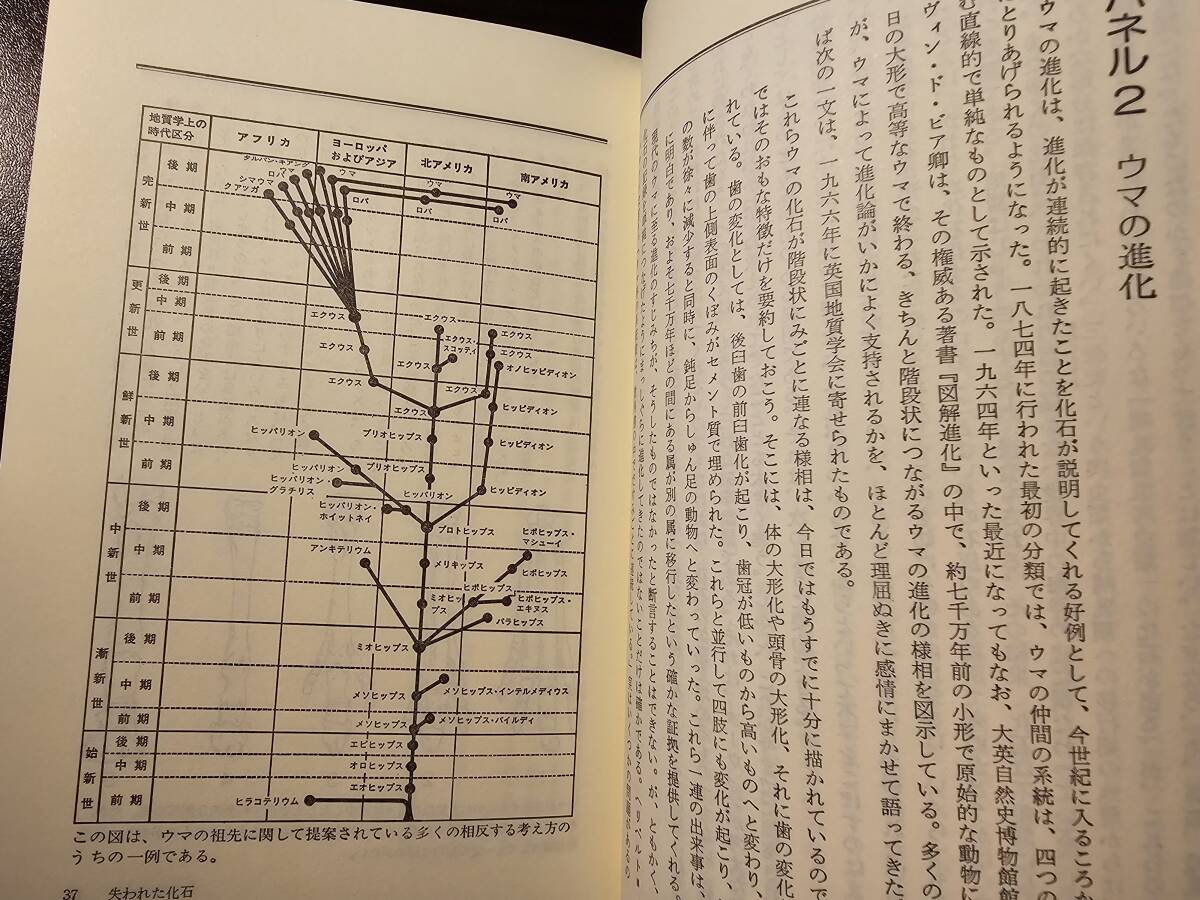 パネル2 ウマの進化
ウマの進化は、進化が連続的に起きたことを化石が説明してくれる好例として、今世紀に入るころか
にとりあげられるようになった。一八七四年に行われた最初の分類では、ウマの仲間の系統は、四つの
む直線的で単純なものとして示された。一九六四年といった最近になってもなお、大英自然史博物館館
ヴィン・ド・ビア卿は、その権威ある著書『図解進化』の中で、約七千万年前の小形で原始的な動物に
日の大形で高等なウマで終わる、きちんと階段状につながるウマの進化の様相を図示している。多くの
が、ウマによって進化論がいかによく支持されるかを、ほとんど理屈ぬきに感情にまかせて語ってきた
ば次の一文は、一九六六年に英国地質学会に寄せられたものである。
これらウマの化石が階段状にみごとに連なる様相は、今日ではもうすでに十分に描かれているので
ではそのおもな特徴だけを要約しておこう。そこには、体の大形化や頭骨の大形化、それに歯の変化
れている。歯の変化としては、後臼歯の前臼歯化が起こり、歯冠が低いものから高いものへと変わり、
に伴って歯の上側表面のくぼみがセメント質で埋められた。これらと並行して四肢にも変化が起こり、
の数が徐々に減少すると同時に、鈍足からしゅん足の動物へと変わっていった。これら一連の出来事は、
に明白であり、およそ七千万年ほどの間にある属が別の属に移行したという確かな証拠を提供してくれる。
現代のウマに至る進化のすじみちが、そうしたものではなかったと断言することはできない。が、ともかく、
地質学上の
時代区分
アフリカ
ヨーロッパ
およびアジア
北アメリカ
南アメリカ
完新世
後期
中期
前期
更新世
後期
中期
前期
鮮新世
後期
中期
前期
中新世
後期
中期
前期
漸新世
後期
中期
前期
始新世
後期
中期
前期
タルパン・キアング
ロバ
シマウマ
クアッガ
ウマ
ウマ
ウマ
ロバ
ロバ
ロバ
エクウス
エクウス
エクウス
エクウス
エクウス・
スコッティ
エクウス
エクウス
エクウス
エクウス
オノヒッピディオン
ヒッピディオン
ヒッピディオン
ヒッピディオン
プリオヒップス
プリオヒップス
ヒッパリオン
ヒッパリオン
ヒッパリオン・
グラチリス
ヒッパリオン
ヒッパリオン・
ホイットネイ
プロトヒップス
アンキテリウム
メリキップス
ヒポヒップス・
マシューイ
ヒポヒップス
ヒポヒップス
ヒポヒップス・
エキヌス
ミオヒッ
プス
パラヒップス
ミオヒップス
メソヒップス
メソヒップス・インテルメディウス
メソヒップス
メソヒップス・バイルディ
エピヒップス
オロヒップス
エオヒップス
ヒラコテリウム
この図は、ウマの祖先に関して提案されている多くの相反する考え方の
うちの一例である。
37 失われた化石